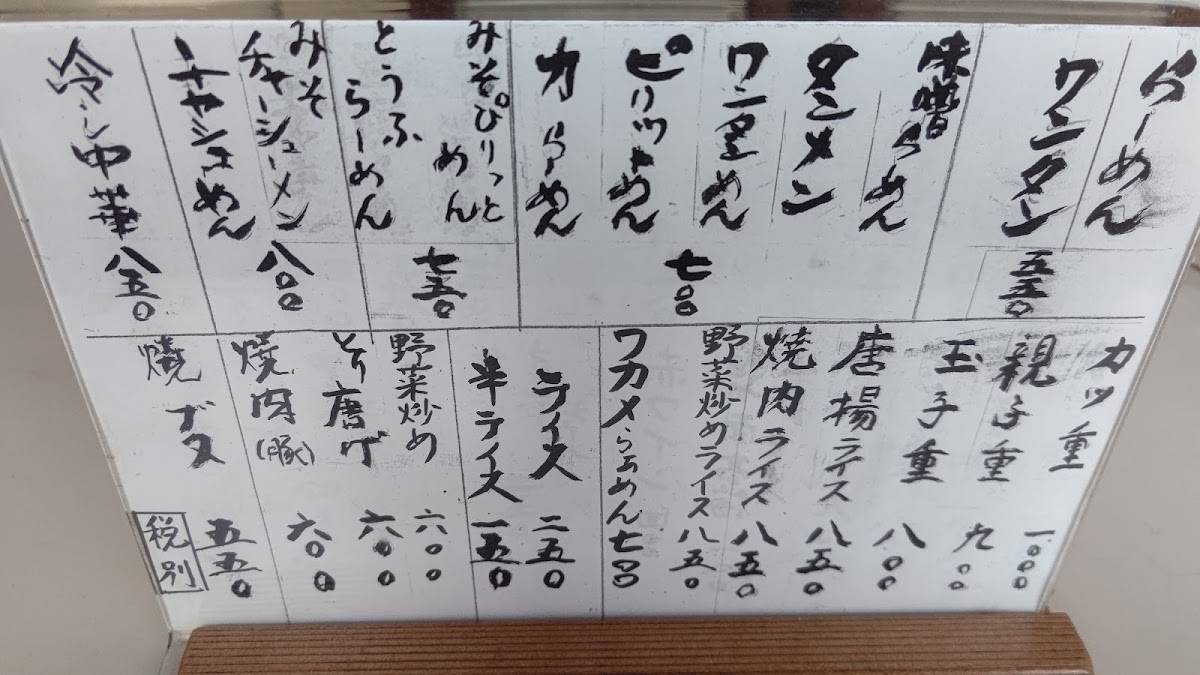 らーめん
ワンタン
五五〇
味噌らーめん
タンメン
ワンタンめん
ピリットめん
力らーめん
七〇〇
みそぴりっと
めん
とうふ
らーめん
七五〇
みそ
チャーシューメン
チャーシューめん
八〇〇
冷し中華
八五〇
カツ重
一〇〇〇
親子重
九〇〇
玉子重
八〇〇
唐揚ライス
八五〇
焼肉ライス
八五〇
野菜炒めライス
八五〇
ワカメらぁめん
七〇〇
ライス
二五〇
半ライス
一五〇
野菜炒め
六〇〇
とり唐げ
六〇〇
焼肉(豚)
六〇〇
焼ブタ
五五〇
税別